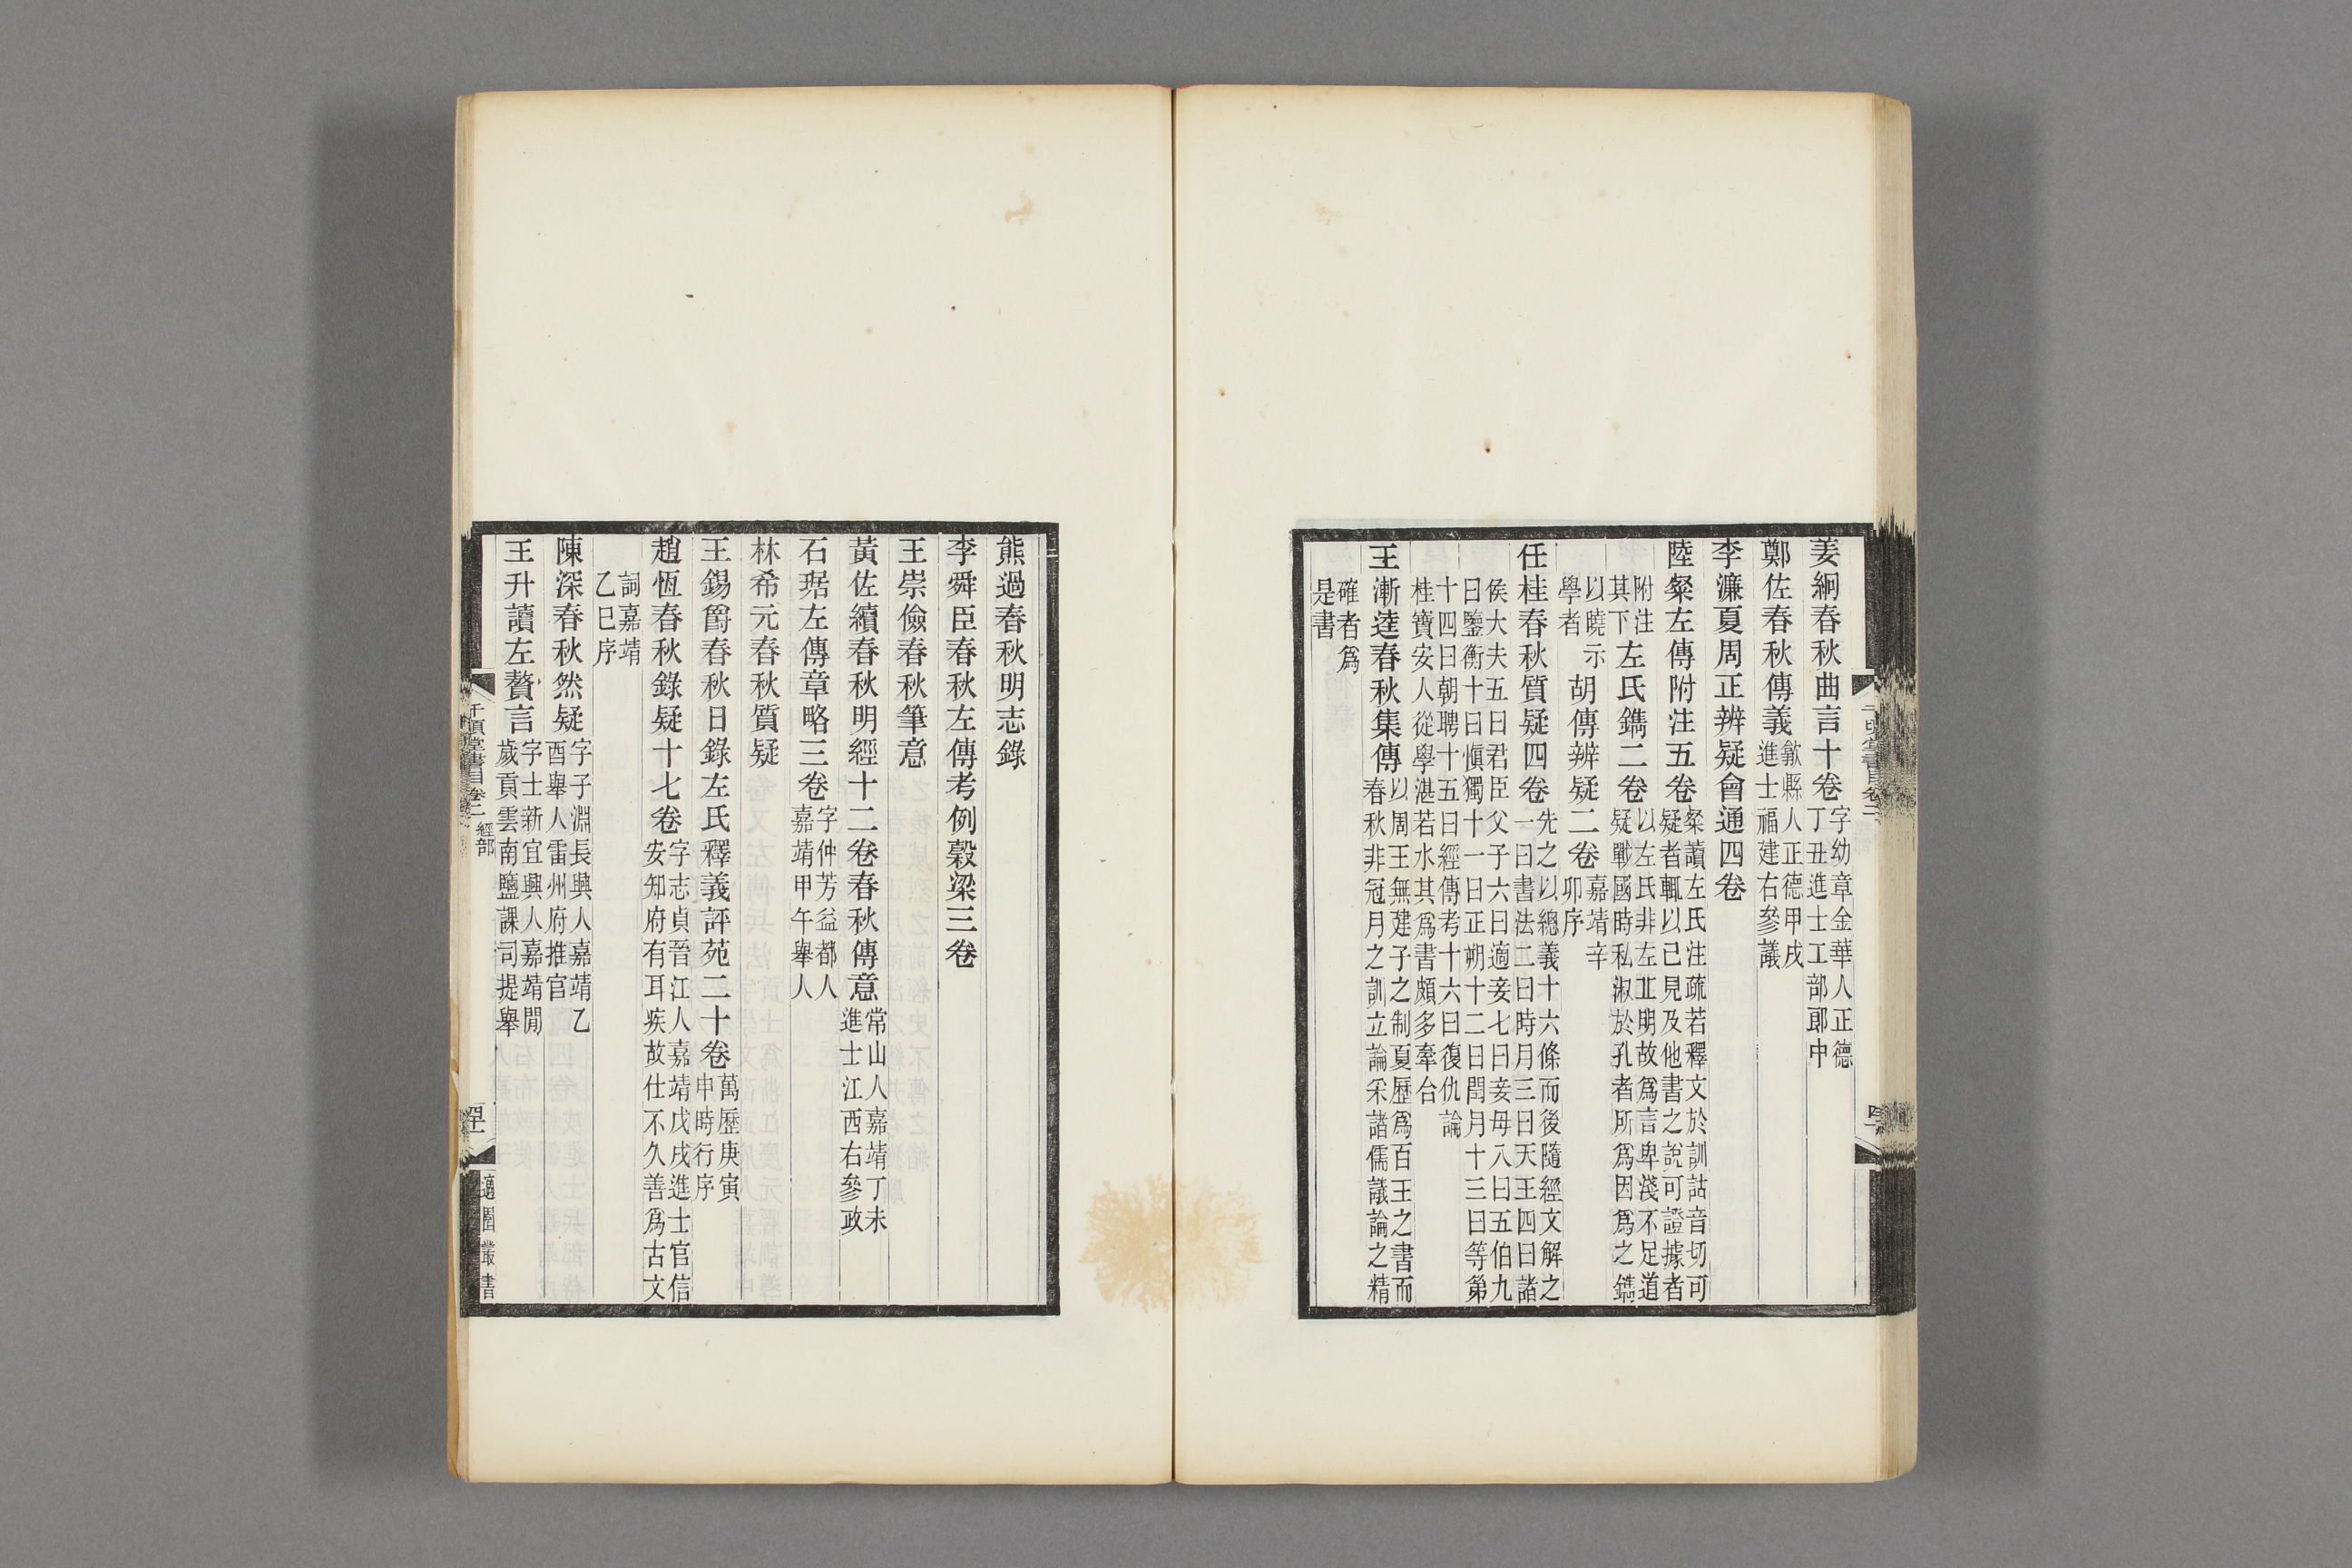 姜綱春秋曲言十卷字幼章金華人正德丁丑進士工部郎中
鄭佐春秋傳義歙縣人正德甲戌進士福建右參議
李濂夏周正辨疑會通四卷
陸粲左傳附注五卷粲讀左氏注疏若釋文於訓詁音切可疑者輒以已見及他書之說可證據者
附注其下左氏鐫二卷以左氏非左丘明故爲言卑淺不足道疑戰國時私淑於孔者所爲因爲之鐫
以曉示學者胡傳辨疑二卷嘉靖辛卯序
任桂春秋質疑四卷先之以總義十六條而後隨經文解之一曰書法二曰時月三曰天王四曰諸
侯大夫五曰君臣父子六曰適妾七曰妾毋八曰五伯九曰鑒衡十曰愼獨十一曰正朔十二曰閏月十三曰等第
十四曰朝聘十五曰經傳考十六曰復仇論桂寶安人從學湛若水其爲書頗多牽合
王漸逵春秋集傳以周王無建子之制夏歷爲百王之書而春秋非冠月之訓立論采諸儒議論之精
確者爲是書
千頃堂書目卷二
熊過春秋明志錄
李舜臣春秋左傳考例穀梁三卷
王崇儉春秋筆意
黃佐續春秋明經十二卷春秋傳意常山人嘉靖丁未進士江西右參政
石琚左傳章略三卷字仲芳益都人嘉靖甲午舉人
林希元春秋質疑
王錫爵春秋日錄左氏釋義評苑二十卷萬歷庚寅申時行序
趙恆春秋錄疑十七卷字志貞晉江人嘉靖戊戌進士官信安知府有耳疾故仕不久善爲古文
詞嘉靖乙巳序
陳深春秋然疑字子淵長興人嘉靖乙酉舉人雷州府推官
王升讀左贅言字士新宜興人嘉靖閒歲貢雲南鹽課司提舉
千頃堂書目卷二 經部
適園叢書